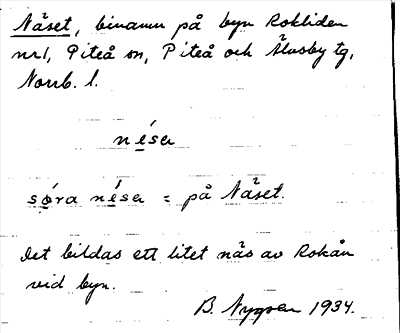 Näset, binamn på byn Rokliden
nr 1, Piteå sn, Piteå och Älvsby tg,
Norrb. l.
nésa
sóra nésa = på Näset.
Det bildas ett litet näs av Rokån
vid byn.
B. Nygren 1934.